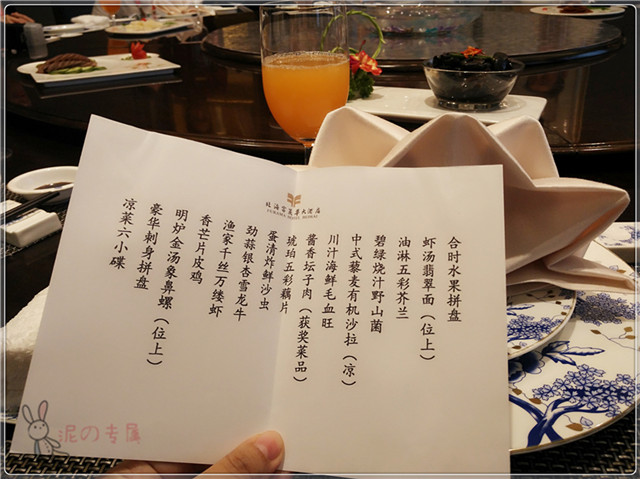 北海富丽华大酒店
凉菜六小碟
豪华刺身拼盘
明炉金汤象鼻螺（位上）
香芒片皮鸡
渔家千丝万缕虾
劲蒜银杏雪龙牛
蛋清炸鲜沙虫
琥珀五彩藕片
酱香坛子肉（获奖菜品）
川汁海鲜毛血旺
中式藜麦有机沙拉（凉）
碧绿烧汁野山菌
油淋五彩芥兰
虾汤翡翠面（位上）
合时水果拼盘
泥の专属